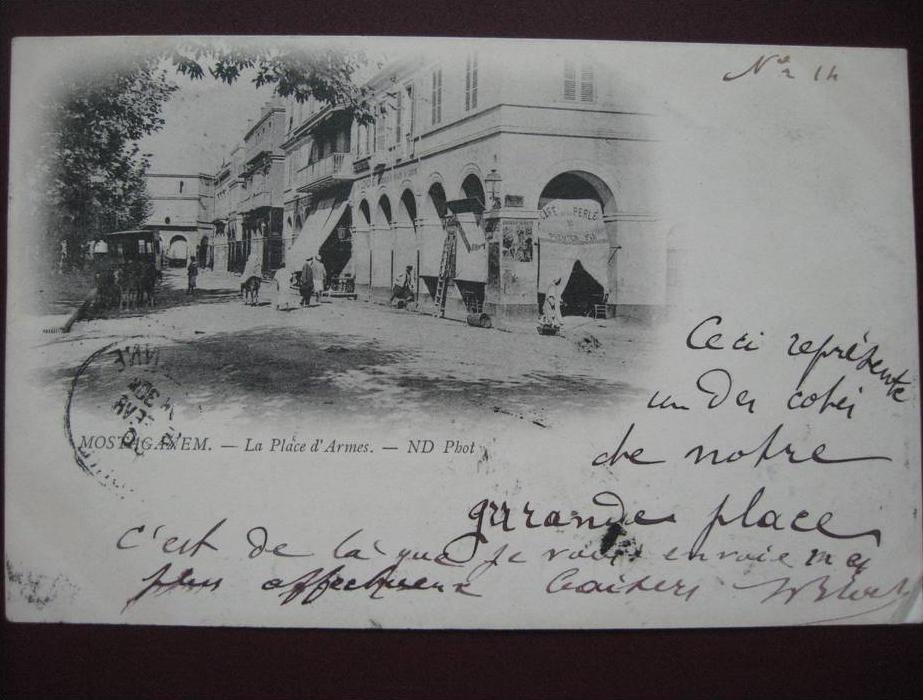 Nº 14
CAFE DE LA PERLE
MOSTAGANEM. — La Place d'Armes. — ND Phot
Ceci représente
un des cotés
de notre
grrande place
C'est de là que je vous envoie mes
plus affectueux baisers